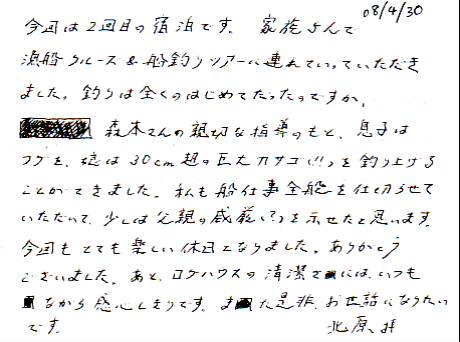 08/4/30
今回は2回目の宿泊です。 家族4人で
漁船クルーズ&船釣りツアーに連れていっていただき
ました。釣りは全くのはじめてだったのですが、
森本さんの親切な指導のもと、息子は
フグを、娘は30cm超の巨大カサゴ(!!)を釣り上げる
ことができました。私も船仕事全般を仕切らせて
いただいて、少しは父親の威厳(?)を示せたと思います。
今回もとても楽しい休日となりました。ありがとう
ございました。あと、ログハウスの清潔さには、いつも
ながら感心しきりです。また是非、お世話になりたい
です。 北原 拝